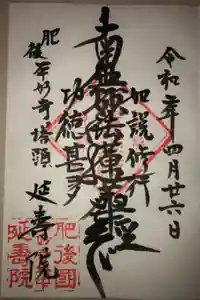 令和二年四月廿六日
如説修行
南無妙法蓮華経
功徳甚多
肥後本妙寺塔頭
延寿院
肥後国
延寿院